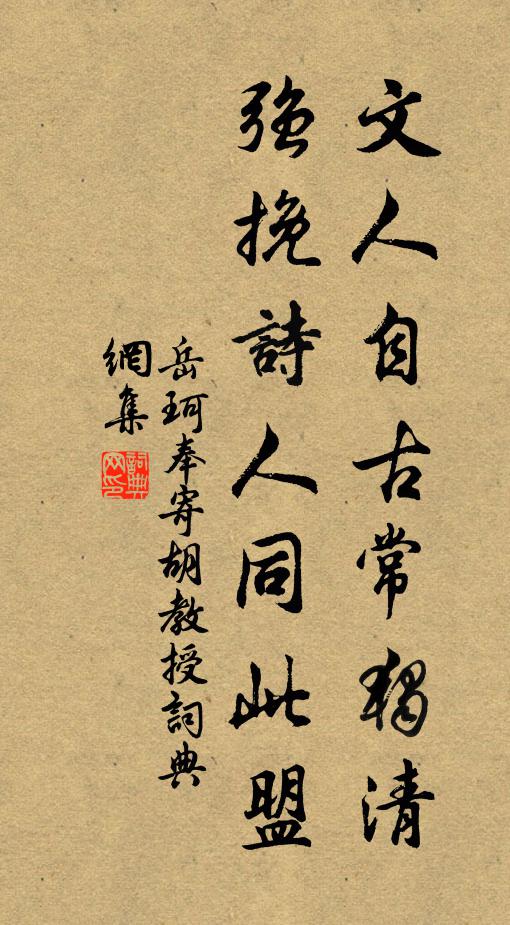 文人自古常獨清
強挽詩人同此盟
岳珂奉寄胡教授詞典
網集
詞典網印